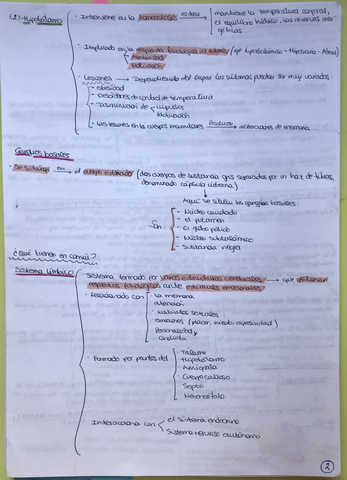 (2) Hipotálamo
· Interviene en la homeostasis es decir mantiene la temperatura corporal,
el equilibrio hídrico, las reservas ener
géticas.
· Implicado en la respuesta fisiológica al estrés (eje hipotalámico - Hipofisario - Adrenal)
- Ansiedad
- Motivación
· Lesiones → Dependiendo del lugar los síntomas pueden ser muy variados:
- obesidad
- Desórdenes de control de temperatura
- Disminución de - impulsos
- Motivación
- Las lesiones en los cuerpos mamilares produce alteraciones de memoria
Ganglios basales
· Se sitúan en el cuerpo estriado (dos cuerpos de sustancia gris separados por un haz de fibras,
denominado cápsula interna)
Aquí se sitúan los ganglios basales:
Son
- Núcleo caudado
- el putamen
- El globo pálido
- Núcleo subtalámico
- sustancia negra
¿Qué tienen en común?
Sistema límbico
· Sistema formado por varias estructuras cerebrales → que gestionan
respuestas fisiológicas ante estímulos emocionales
· Relacionado con
- la memoria
- atención
- instintos sexuales
- emociones (placer, miedo, agresividad)
- Personalidad y
- conducta
· Formado por partes del
- Tálamo
- Hipotálamo
- Amígdala
- Cuerpo calloso
- Septo
- Mesencéfalo
· Interacciona con
el sistema endocrino
Sistema nervioso autónomo
2